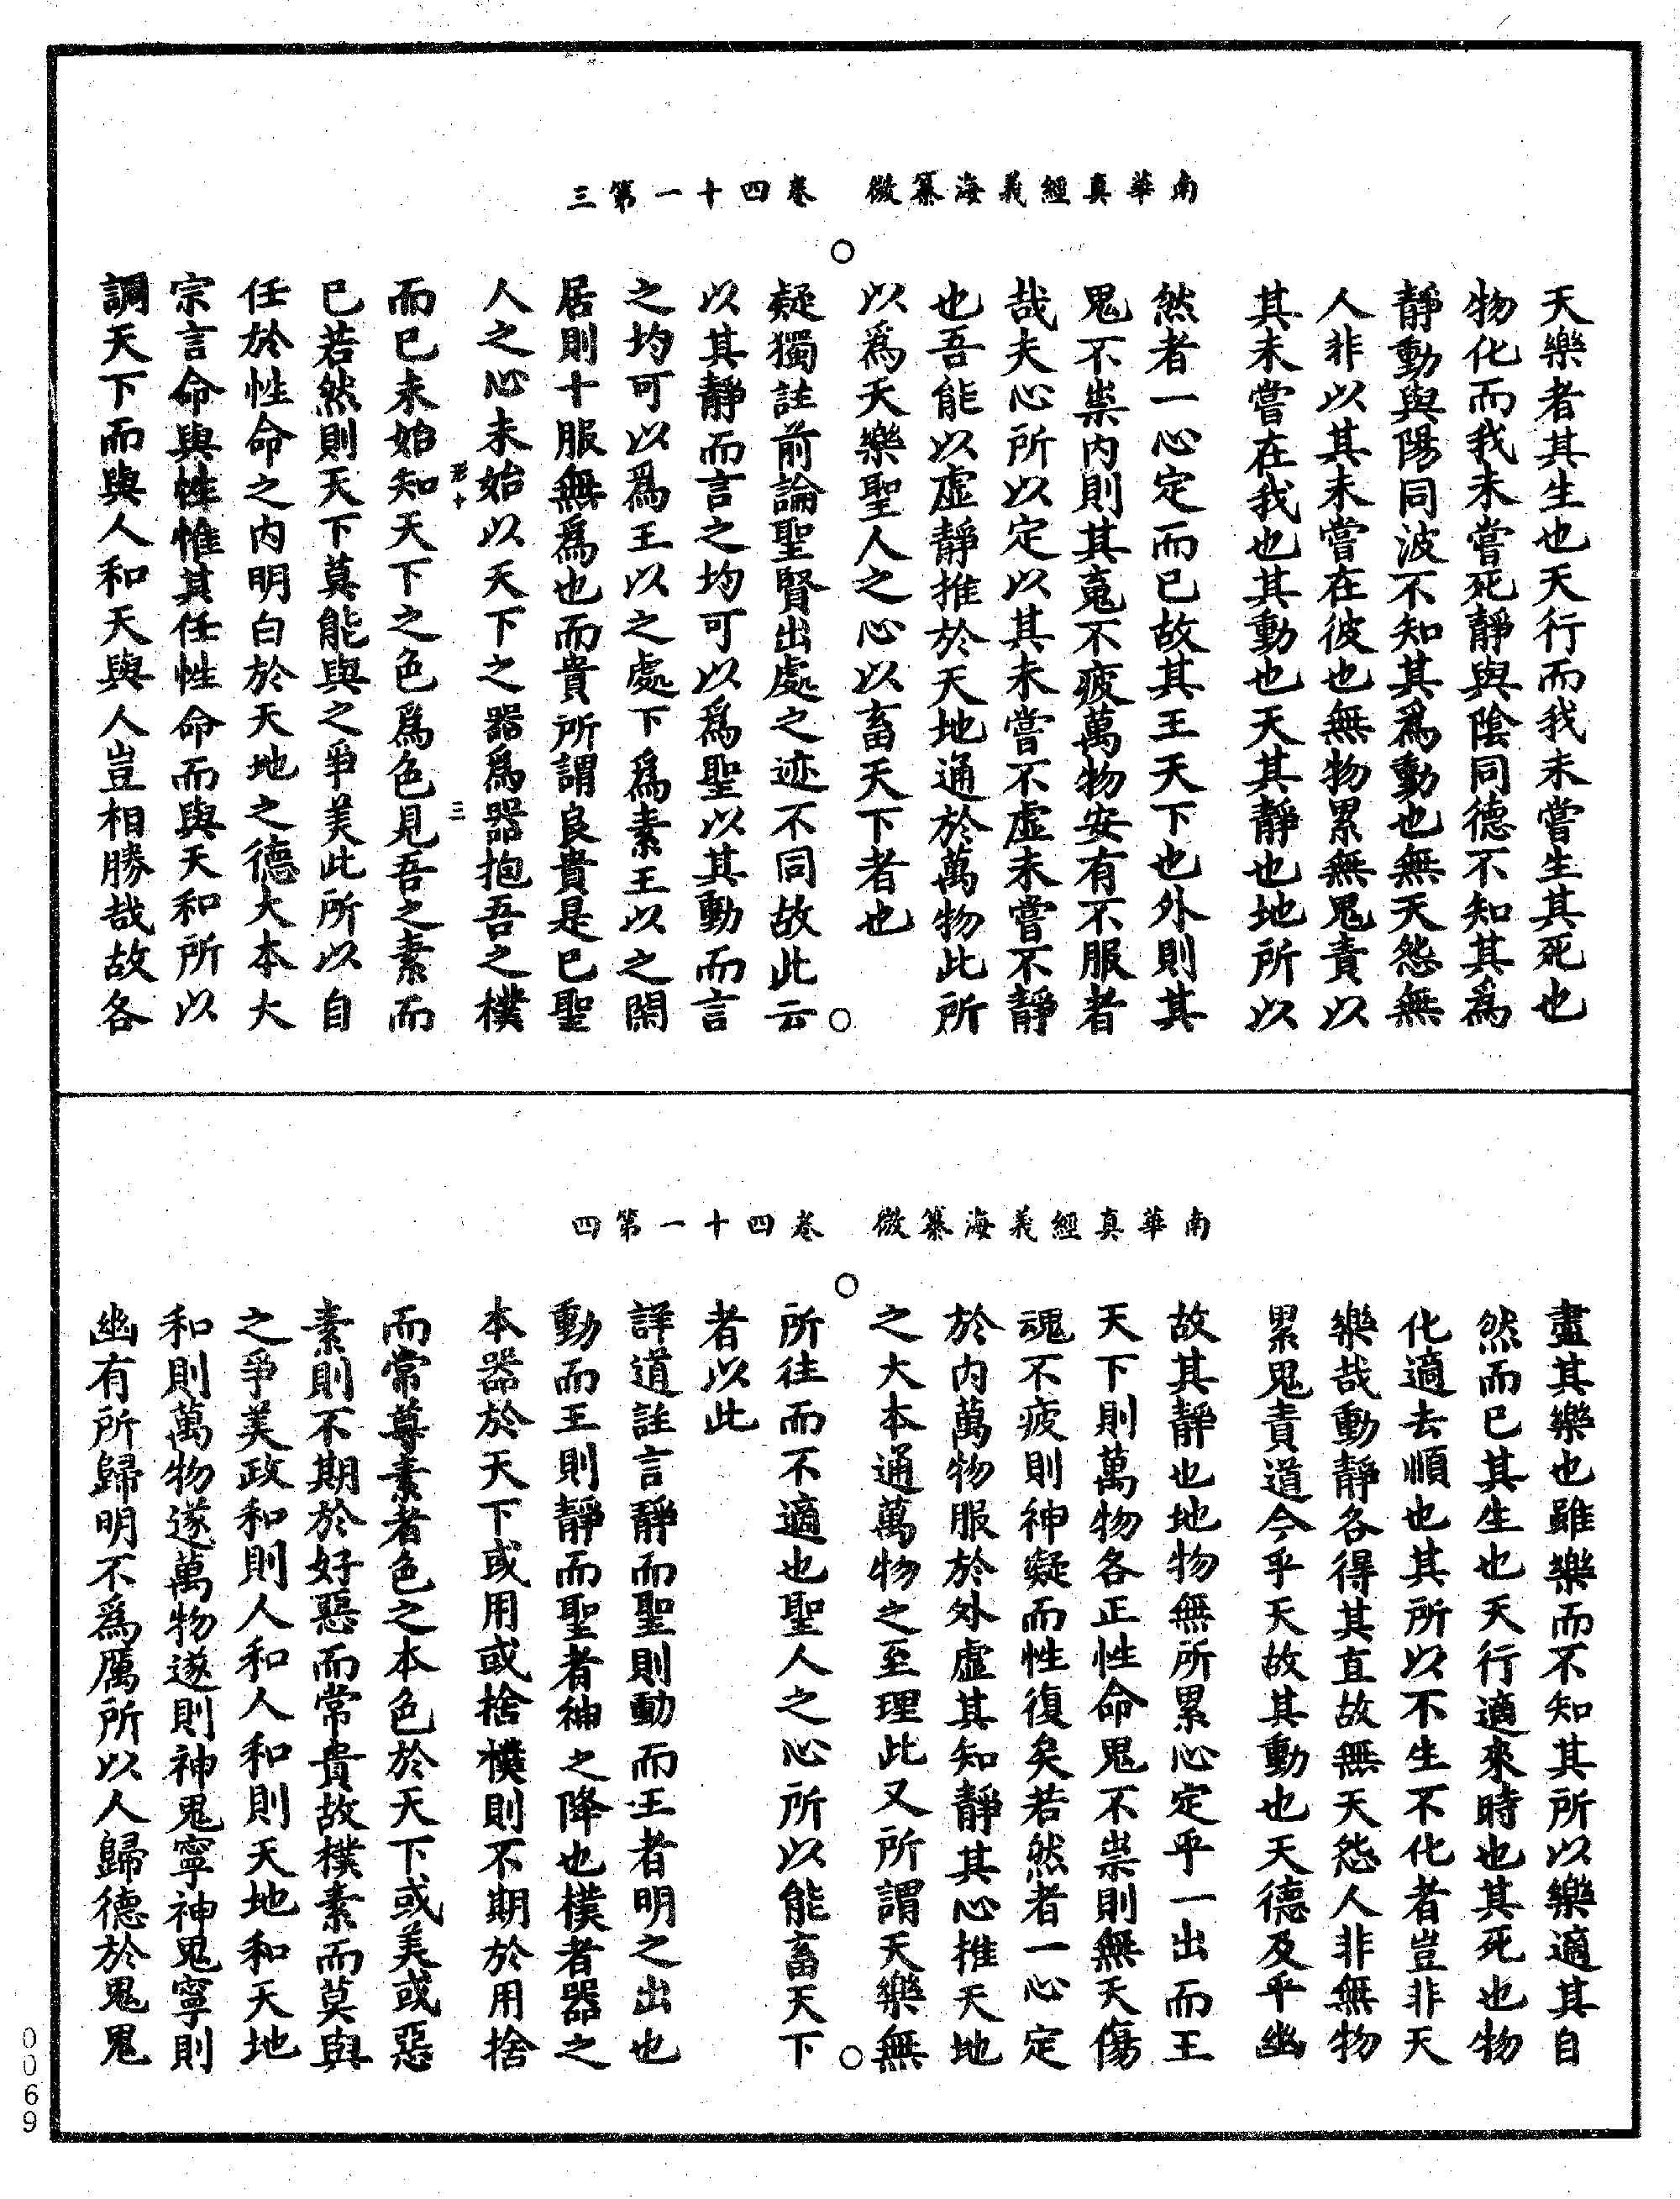 南華真經義海纂微　卷四十一第三
天樂者其生也天行而我未嘗生其死也
物化而我未嘗死靜與陰同德不知其爲
靜動與陽同波不知其爲動也無天怨無
人非以其未嘗在彼也無物累無鬼責以
其未嘗在我也其動也天其靜也地所以
然者一心定而已故其王天下也外則其
鬼不祟内則其䰟不疲萬物安有不服者
哉夫心所以定以其未嘗不虛未嘗不靜
也吾能以虛靜推於天地通於萬物此所
以爲天樂聖人之心以畜天下者也
疑獨註前論聖賢出處之迹不同故此云
以其靜而言之均可以爲聖以其動而言
之均可以爲王以之處下爲素王以之閑
居則十服無爲也而貴所謂良貴是已聖
人之心未始以天下之器爲器抱吾之樸
而已未始知天下之色爲色見吾之素而
已若然則天下莫能與之爭美此所以自
任於性命之内明白於天地之德大本大
宗言命與性惟其任性命而與天和所以
調天下而與人和天與人豈相勝哉故各
南華真經義海纂微　卷四十一第四
盡其樂也雖樂而不知其所以樂適其自
然而已其生也天行適來時也其死也物
化適去順也其所以不生不化者豈非天
樂哉動靜各得其直故無天怨人非無物
累鬼責道今乎天故其動也天德及乎幽
故其靜也地物無所累心定乎一出而王
天下則萬物各正性命鬼不祟則無天傷
魂不疲則神凝而性復矣若然者一心定
於内萬物服於外虛其知靜其心推天地
之大本通萬物之至理此又所謂天樂無
所往而不適也聖人之心所以能畜天下
者以此
詳道註言靜而聖則動而王者明之出也
動而王則靜而聖者神之降也樸者器之
本器於天下或用或捨樸則不期於用捨
而常尊素者色之本色於天下或美或惡
素則不期於好惡而常貴故樸素而莫與
之爭美政和則人和人和則天地和天地
和則萬物遂萬物遂則神鬼寧神鬼寧則
幽有所歸明不爲厲所以人歸德於鬼鬼
0069